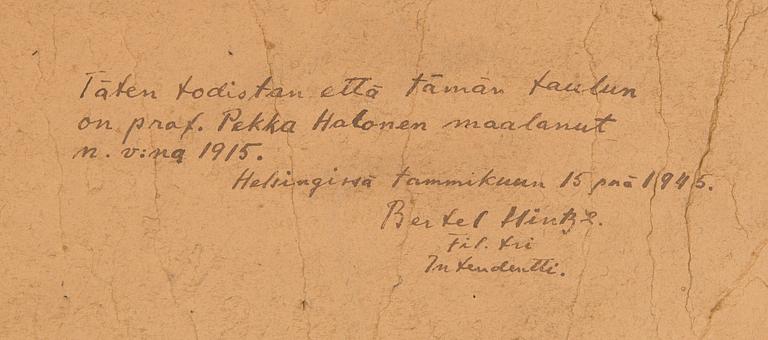 Täten todistan että tämän taulun
on prof. Pekka Halonen maalanut
n. v:na 1915.
Helsingissä tammikuun 15 p:nä 1945.
Bertel Hintze.
Fil. tri
Intendentti.